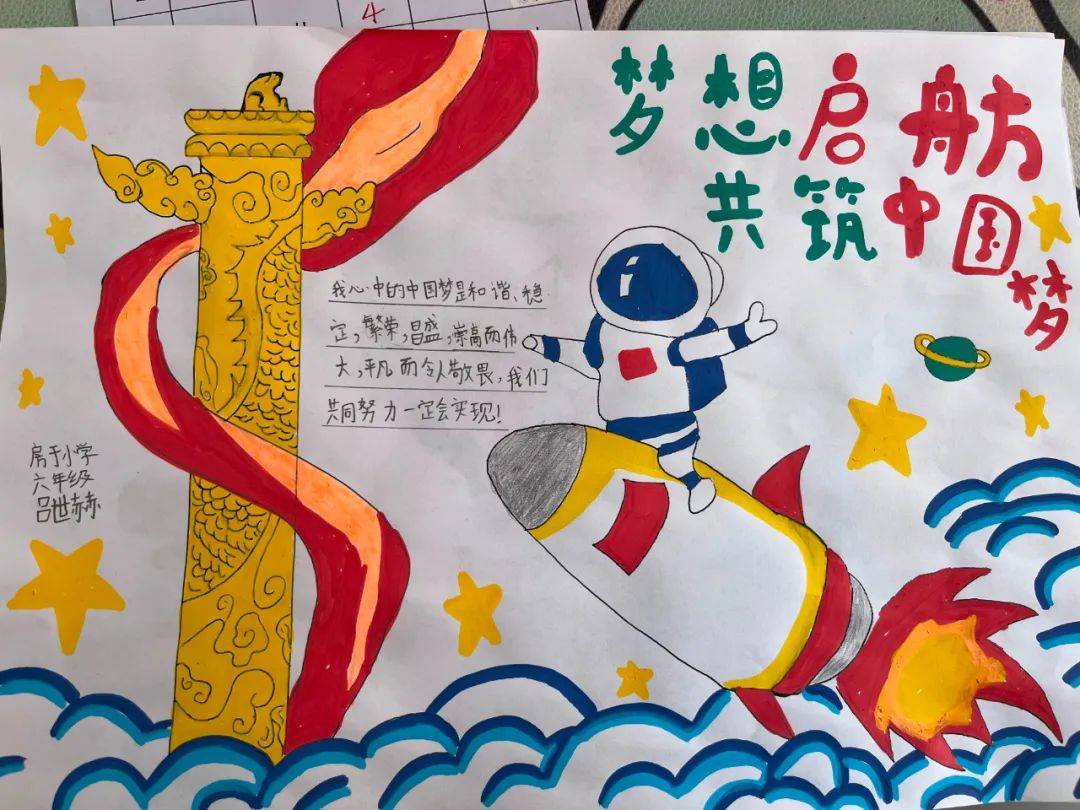 4
梦想启航
共筑中国梦
我心中的中国梦是和谐、稳
定,繁荣,昌盛,崇高而伟
大,平凡而令人敬畏,我们
共同努力一定会实现!
房于小学
六年级
吕世赫